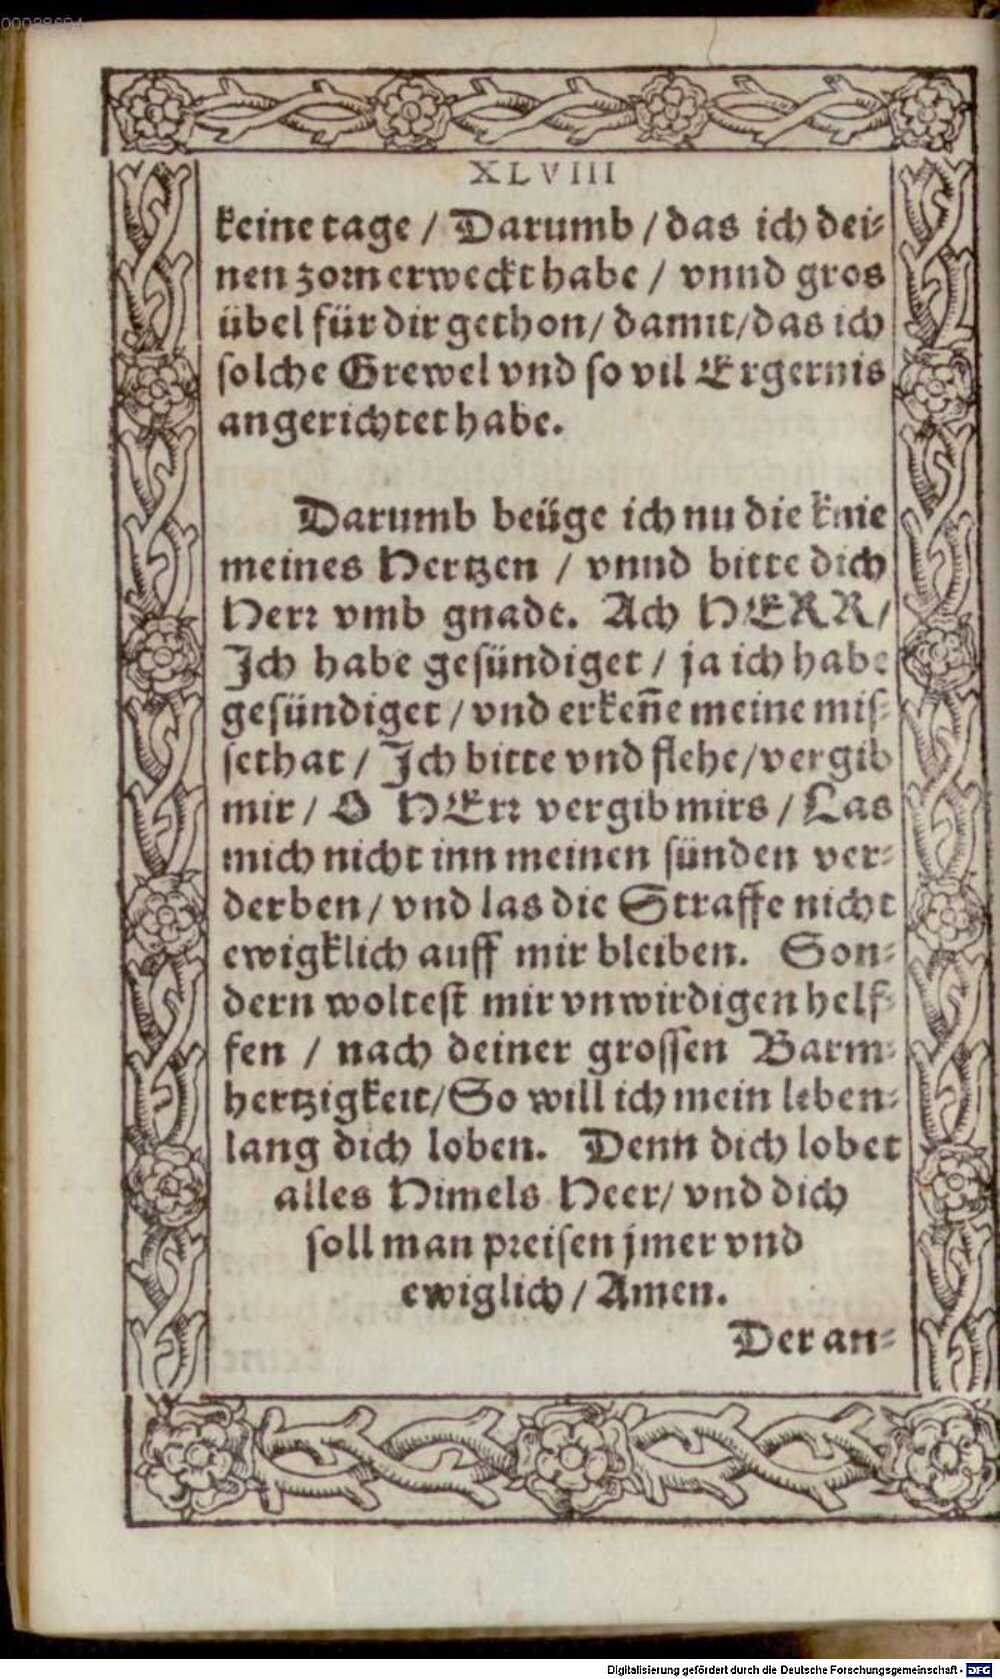 00028694
XLVIII
keine tage / Darumb / das ich dei-
nen zorn erweckt habe / vnnd gros
übel für dir gethon / damit / das ich
solche Grewel vnd so vil Ergernis
angerichtet habe.
Darumb beüge ich nu die knie
meines Hertzen / vnnd bitte dich
Herr vmb gnade. Ach HERR /
Ich habe gesündiget / ja ich habe
gesündiget / vnd erkeñe meine mis-
sethat / Ich bitte vnd flehe / vergib
mir / O HErr vergib mirs / Las
mich nicht inn meinen sünden ver-
derben / vnd las die Straffe nicht
ewigklich auff mir bleiben. Son-
dern woltest mir vnwirdigen helf-
fen / nach deiner grossen Barm-
hertzigkeit / So will ich mein leben-
lang dich loben. Denn dich lobet
alles Himels Heer / vnd dich
soll man preisen jmer vnd
ewiglich / Amen.
Der an-
Digitalisierung gefördert durch die Deutsche Forschungsgemeinschaft - DFG